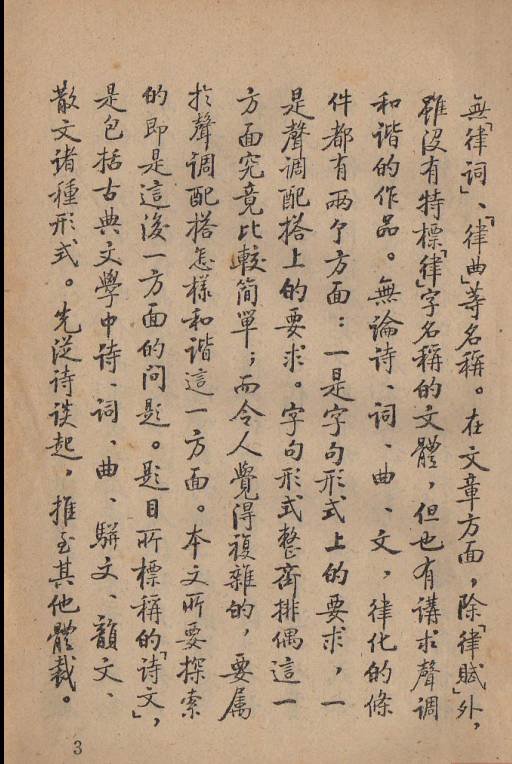 無「律詞」、「律曲」等名稱。在文章方面，除「律賦」外，
雖没有特標「律」字名稱的文體，但也有講求聲調
和谐的作品。無論詩、詞、曲、文，律化的條
件都有兩个方面：一是字句形式上的要求，一
是聲調配搭上的要求。字句形式整齊排偶這一
方面究竟比較簡單；而令人覺得複雜的，要属
於聲調配搭怎樣和谐這一方面。本文所要探索
的即是這後一方面的问題。題目所標稱的「詩文」，
是包括古典文學中詩、詞、曲、駢文、韻文、
散文诸種形式。先從詩谈起，推至其他體裁。
3